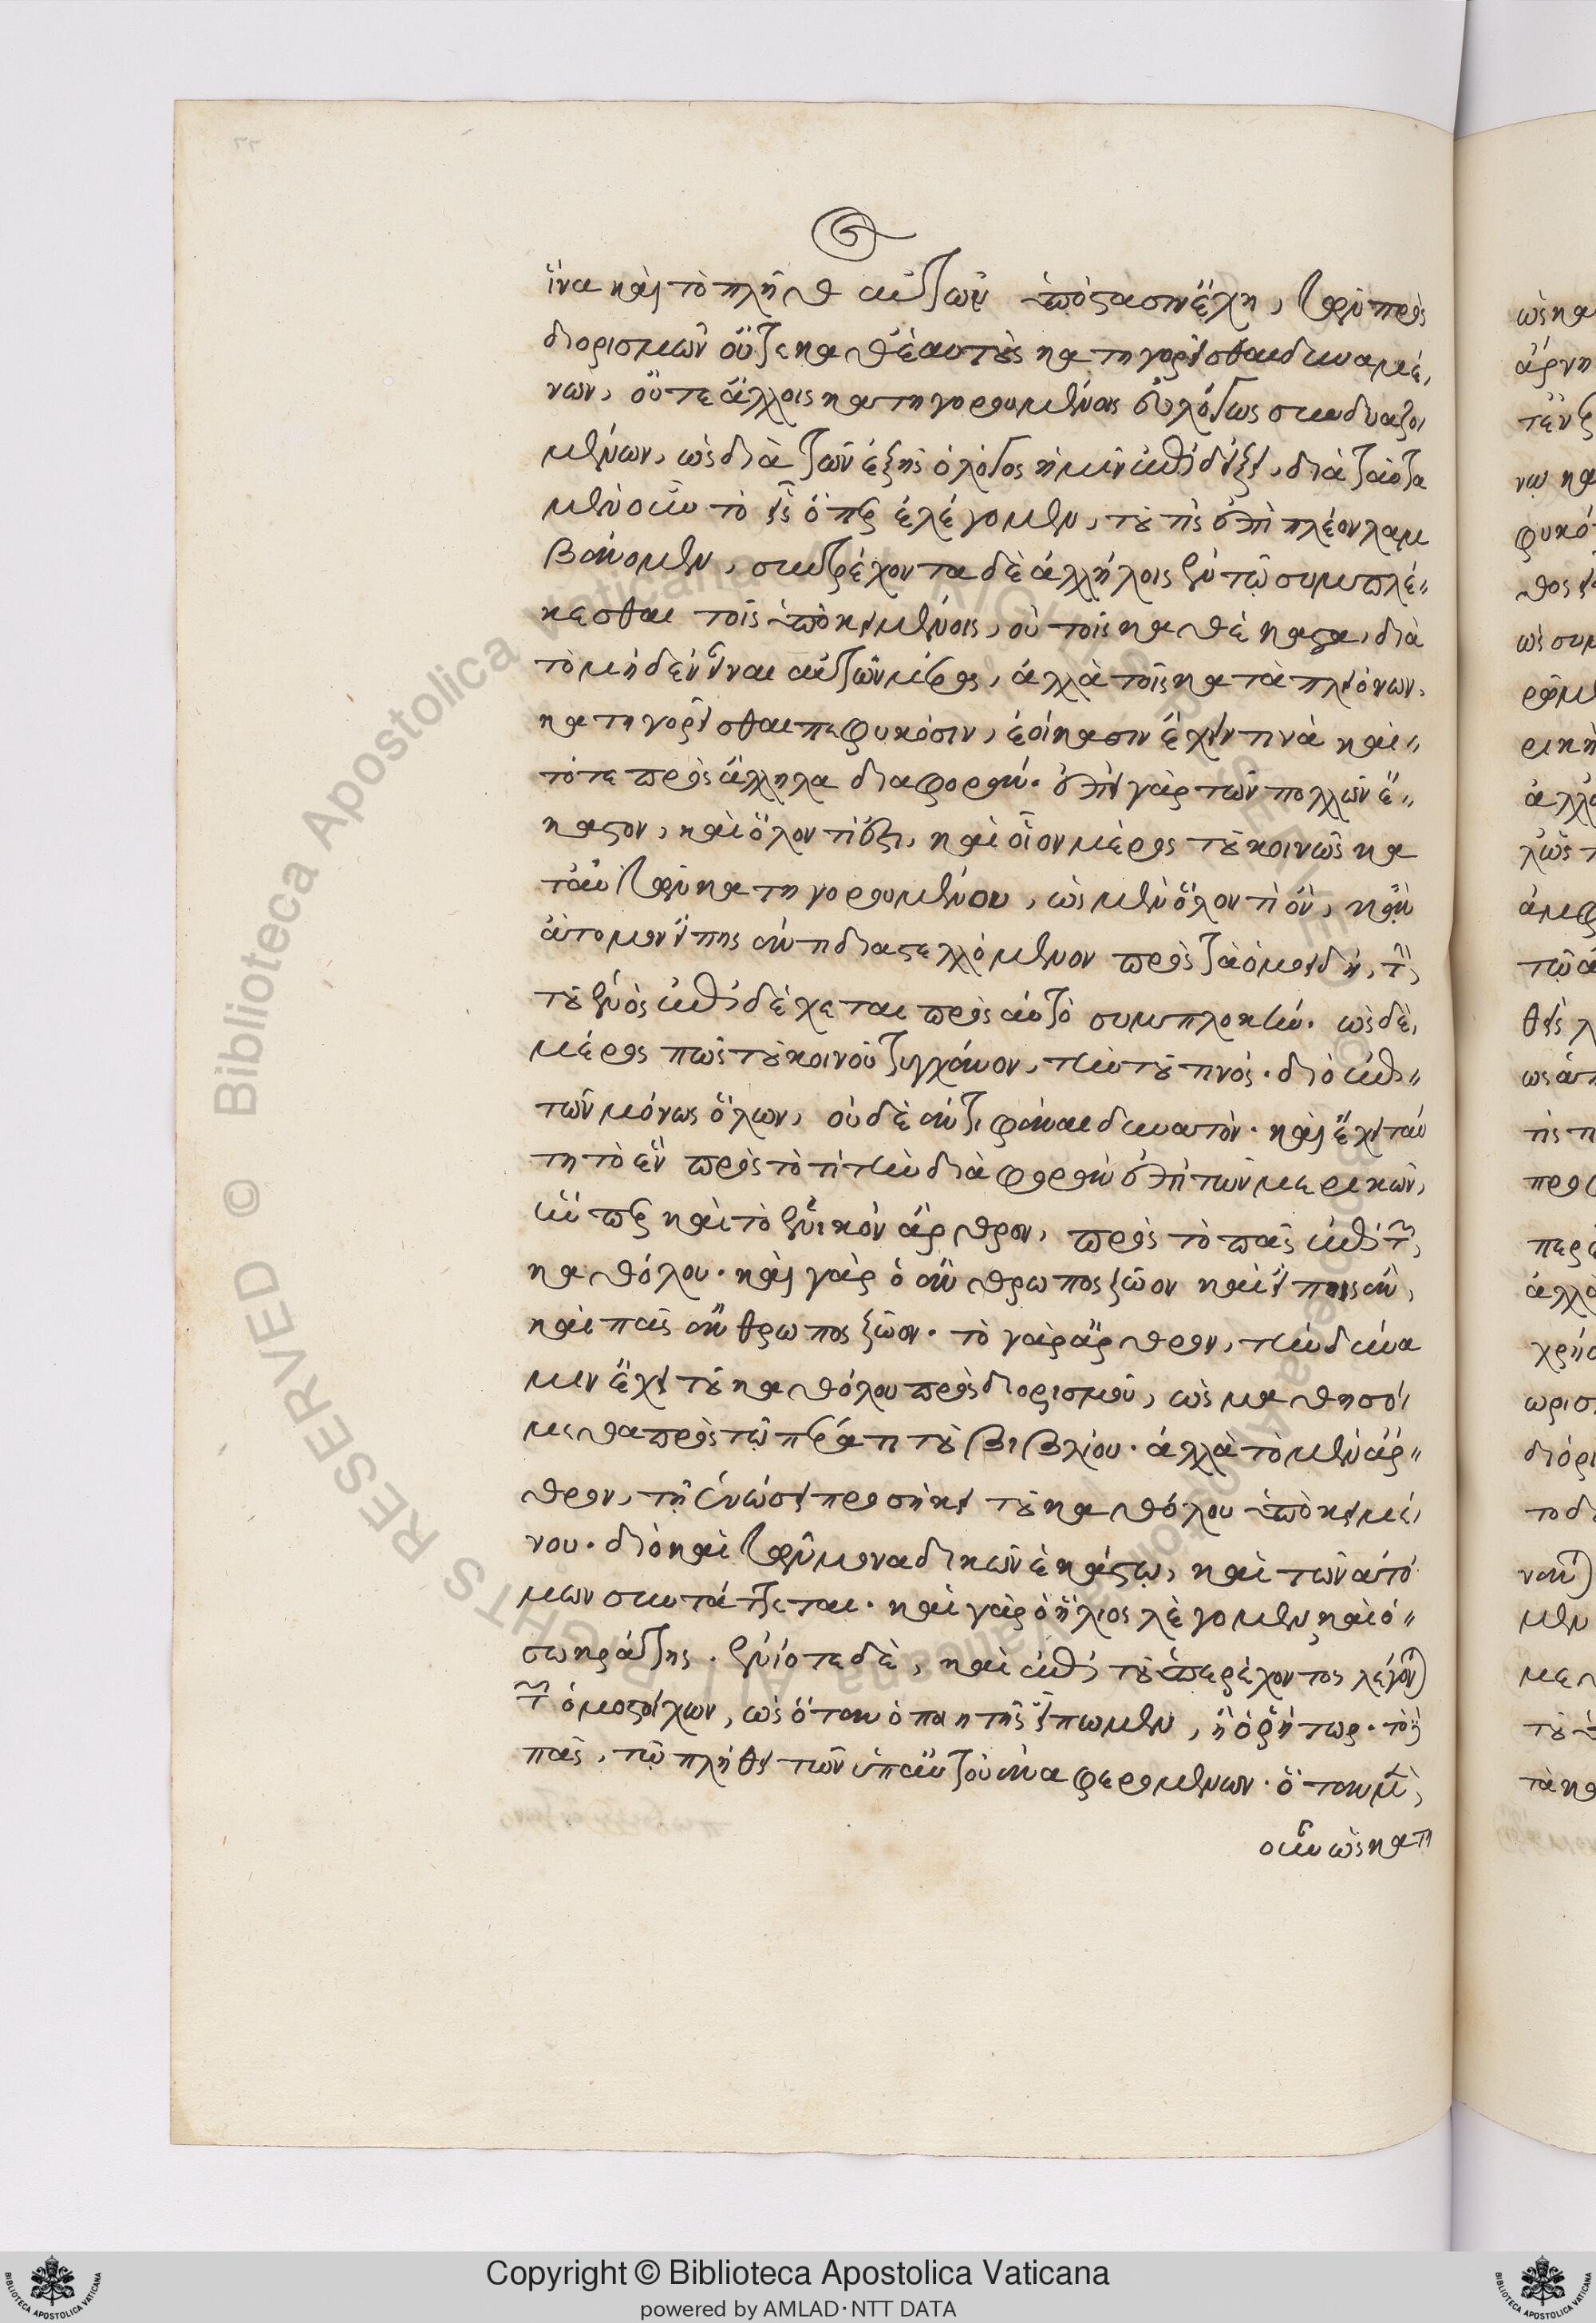 ἵνα καὶ τὸ πλῆθος αὐτῶν ὑπόστασιν ἔχη, τῶν προς
διορισμῶν οὔτε καθ' ἑαυτοὺς κατηγορεῖσθαι δυναμέ,
νων, οὔτε ἄλλοις κατηγορουμένοις εὐλόγως συνδυαζο,
μένων, ὡς διὰ τῶν ἑξῆς ὁ λόγος ἡμῖν ἐπιδείξει, διὰ ταῦτα
μὲν οὖν τὸ εἷς ὅπερ ἐλέγομεν, τοῦ τὶς ἐπὶ πλέον λαμ
βάνομεν, συντρέχοντα δὲ ἀλλήλοις ἐν τῷ συμπλέ„
κεσθαι τοῖς ὑποκειμένοις, οὐ τοῖς καθέκαστα, διὰ
τὸ μηδὲν εἶναι αὐτῶν μέρος, ἀλλὰ τοῖς κατὰ πλειόνων,
κατηγορεῖσθαι πεφυκόσιν, ἐοίκασιν ἔχειν τινὰ καὶ„
τότε πρὸς ἄλληλα διαφοράν. ἐπεὶ γὰρ τῶν πολλῶν ἕ„
καστον, καὶ ὅλον τί ἐστι, καὶ οἷον μέρος τοῦ κοινῶς κα
τ' αὐτῶν κατηγορουμένου, ὡς μὲν ὅλον τὶ ὂν, κἂν
ἄτομον εἴπης ἀντιδιαστελλόμενον πρὸς τὰ ὁμοειδῆ, τὴν
τοῦ ἑνὸς ἐπιδέχεται πρὸς αὐτὸ συμπλοκήν. ὡς δὲ,
μέρος πως τοῦ κοινοῦ τυγχάνον, τὴν τοῦ τινός. διὸ ἐπὶ„
τῶν μόνως ὅλων, οὐδὲ ἀντιφάναι δυνατόν. καὶ ἔχει ταύ
τη τὸ ἓν πρὸς τὸ τὶ τὴν διαφορὰν ἐπὶ τῶν μερικῶν,
ἥν περ καὶ τὸ ἑνικὸν ἄρθρον, πρὸς τὸ πᾶς ἐπὶ τῶν,
καθόλου. καὶ γὰρ ὁ ἄνθρωπος ζῷον καὶ εἴποις ἂν,
καὶ πᾶς ἄνθρωπος ζῷον. τὸ γὰρ ἄρθρον, τὴν δύνα
μιν ἔχει τοῦ καθόλου προσδιορισμοῦ, ὡς μαθησό,
μεθα πρὸς τῷ πέρατι τοῦ βιβλίου. ἀλλὰ τὸ μὲν ἄρ„
θρον, τῇ ἑνώσει προσήκει τοῦ καθόλου ὑποκειμέ,
νου. διὸ καὶ τῶν μοναδικῶν ἑκάστῳ, καὶ τῶν ἀτό
μων συντάττεται. καὶ γὰρ ὁ ἥλιος λέγομεν, καὶ ὁ„
σωκράτης. ἐνίοτε δὲ, καὶ ἐπὶ τοῦ ὑπερέχοντος λέγον
τῶν ὁμοστοίχων, ὡς ὅταν ὁ ποιητὴς εἴπωμεν, ἢ ὁ ῥήτωρ. τὸ δὲ
πᾶς, τῷ πλήθει τῶν ὑπ' αὐτοῦ ἀναφερομένων. ὅταν μὲν,
οὖν ὡς κατη